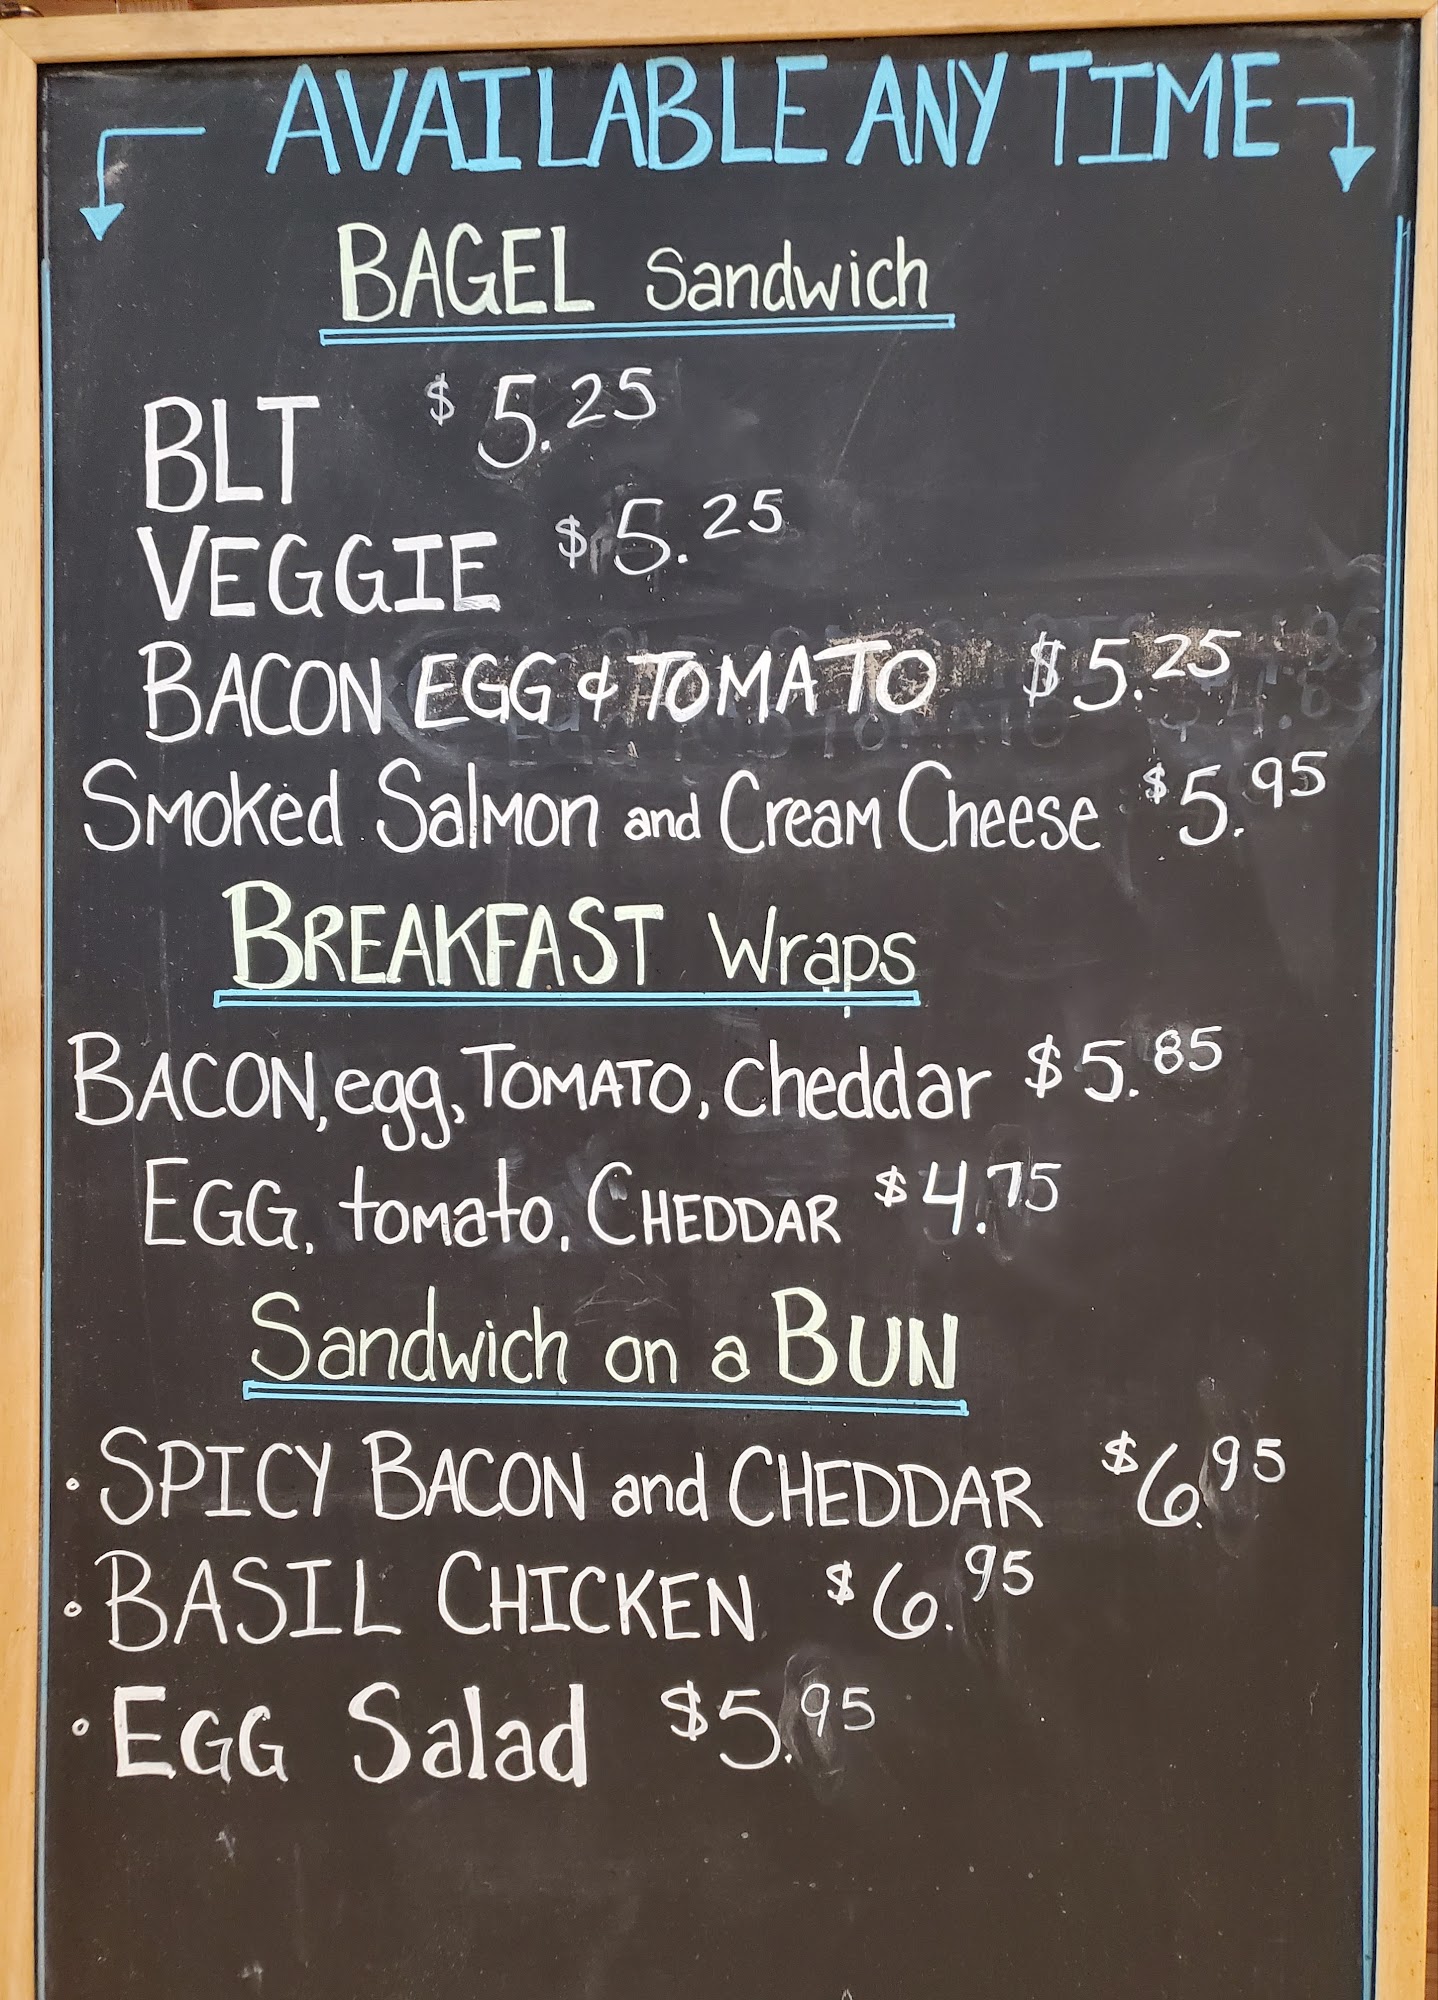 AVAILABLE ANY TIME
BAGEL Sandwich
BLT $5.25
VEGGIE $5.25
BACON EGG & TOMATO $5.25
Smoked Salmon and Cream Cheese $5.95
BREAKFAST Wraps
BACON, egg, TOMATO, Cheddar $5.85
EGG, tomato, CHEDDAR $4.75
Sandwich on a BUN
• SPICY BACON and CHEDDAR $6.95
• BASIL CHICKEN $6.95
• EGG Salad $5.95